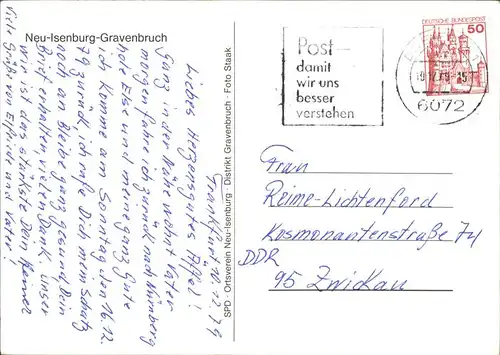 Neu-Isenburg-Gravenbruch
Frankfurt 10.12.79
Liebes Herzensgutes Äffel!
Ganz in der Nähe wohnt Vater
morgen fahre ich zurück nach Nürnberg
hole Else und meine ganz Gute
ich komme am Sonntag den 16.12.
79 zurück, ich Dich mein Schatz
noch an Bleibe ganz gesund Dein
Brief erhalten, vielen Dank. Unser
wir ist das stärkste Dein Heiner
Viele Grüße von Elfriede und Vater!
SPD · Ortsverein Neu-Isenburg · Distrikt Gravenbruch · Foto Staak
Post –
damit
wir uns
besser
verstehen
6072
DEUTSCHE BUNDESPOST
50
Frau
Reime-Lichtenford
Kosmonautenstraße 74
DDR
95 Zwickau